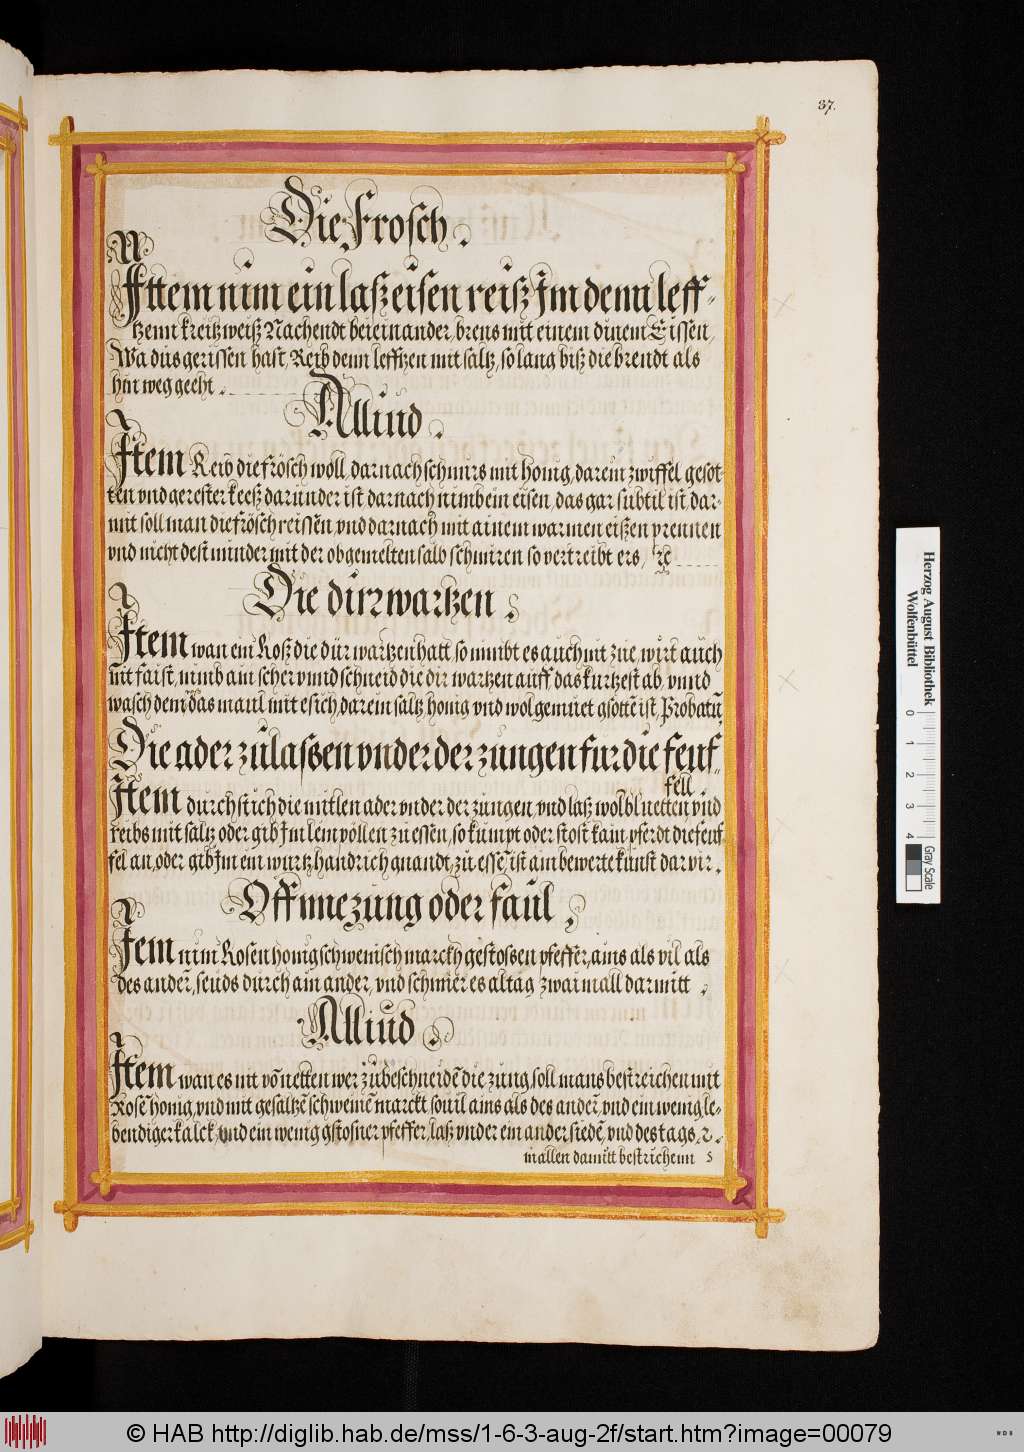 37.
Die Frosch.
Ittem nim ein laßeisen reiß Im denn leff-
tzenn kreitzweiß Nachendt bei einander, brens mit einem dinem Eissen,
Wa dus gerissen hast, Reib denn leffzen mit saltz, so lang biß die brendt als
hin weg geeht.
Alliud.
Item Reib die frösch woll, darnach schmirs mit honig, darein zwiffel gesot-
ten vnd geröster keeß darunder ist darnach nimb ein eisen, das gar subtil ist, dar-
mit soll man die frösch reissen, vnd darnach mit ainem warmen eißen prennen
vnd nicht dest minder mit der obgemelten salb schmiren so vertreibt ers,
Die dirr wartzen
Item wan ein Roß die dür wartzen hatt, so nimbt es auch nit zue, wirt auch
nit faist, nimb ain scher vnnd schneid die dir wartzen auff das kurtzest ab, vnnd
wasch dem das maul mit esich, darein saltz honig vnd wolgemuet gsottē ist, Probatū
Die ader zulassen vnder der zungen fur die feuf-
fell.
Item durchstich die mitlen ader vnder der zungen, vnd laß wol bluetten vnd
reibs mit saltz oder gib Im lein pollen zu essen, so kumpt oder stost kain pferdt die feuf-
fel an, oder gib Im ein wurtz handrich gnandt, zu essē, ist ain bewerte kunst darvir.
Offnne zung oder faul
Item nim Rosen honig schwenisch marckh gestossen pfeffer, ains als vil als
des ander, seuds durch ain ander, vnd schmier es al tag zwaimall darmitt.
Alliud
Item wan es nit vō netten wer zu beschneidē die zung, soll mans bestreichen mit
Rosē honig, vnd mit gesaltzē schweinē marckt souil ains als des ander, vnd ein wenig le-
bendiger kalck, vnd ein wenig gstosner pfeffer, laß vnder ein ander siedē, vnd des tags .2.
mallen damitt bestrichenn
Herzog August Bibliothek
Wolfenbüttel
0 1 2 3 4
Gray Scale
© HAB http://diglib.hab.de/mss/1-6-3-aug-2f/start.htm?image=00079